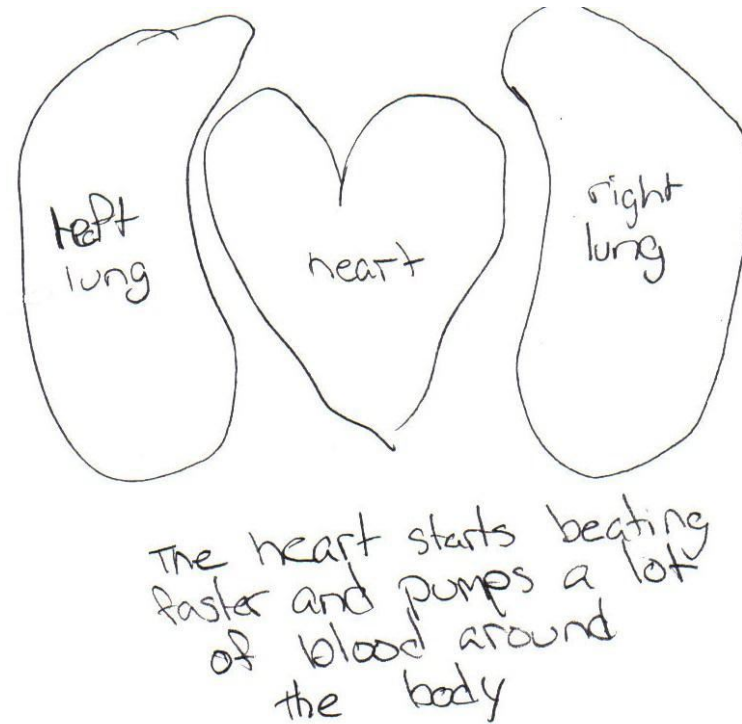 left
lung
heart
right
lung
The heart starts beating
faster and pumps a lot
of blood around
the body